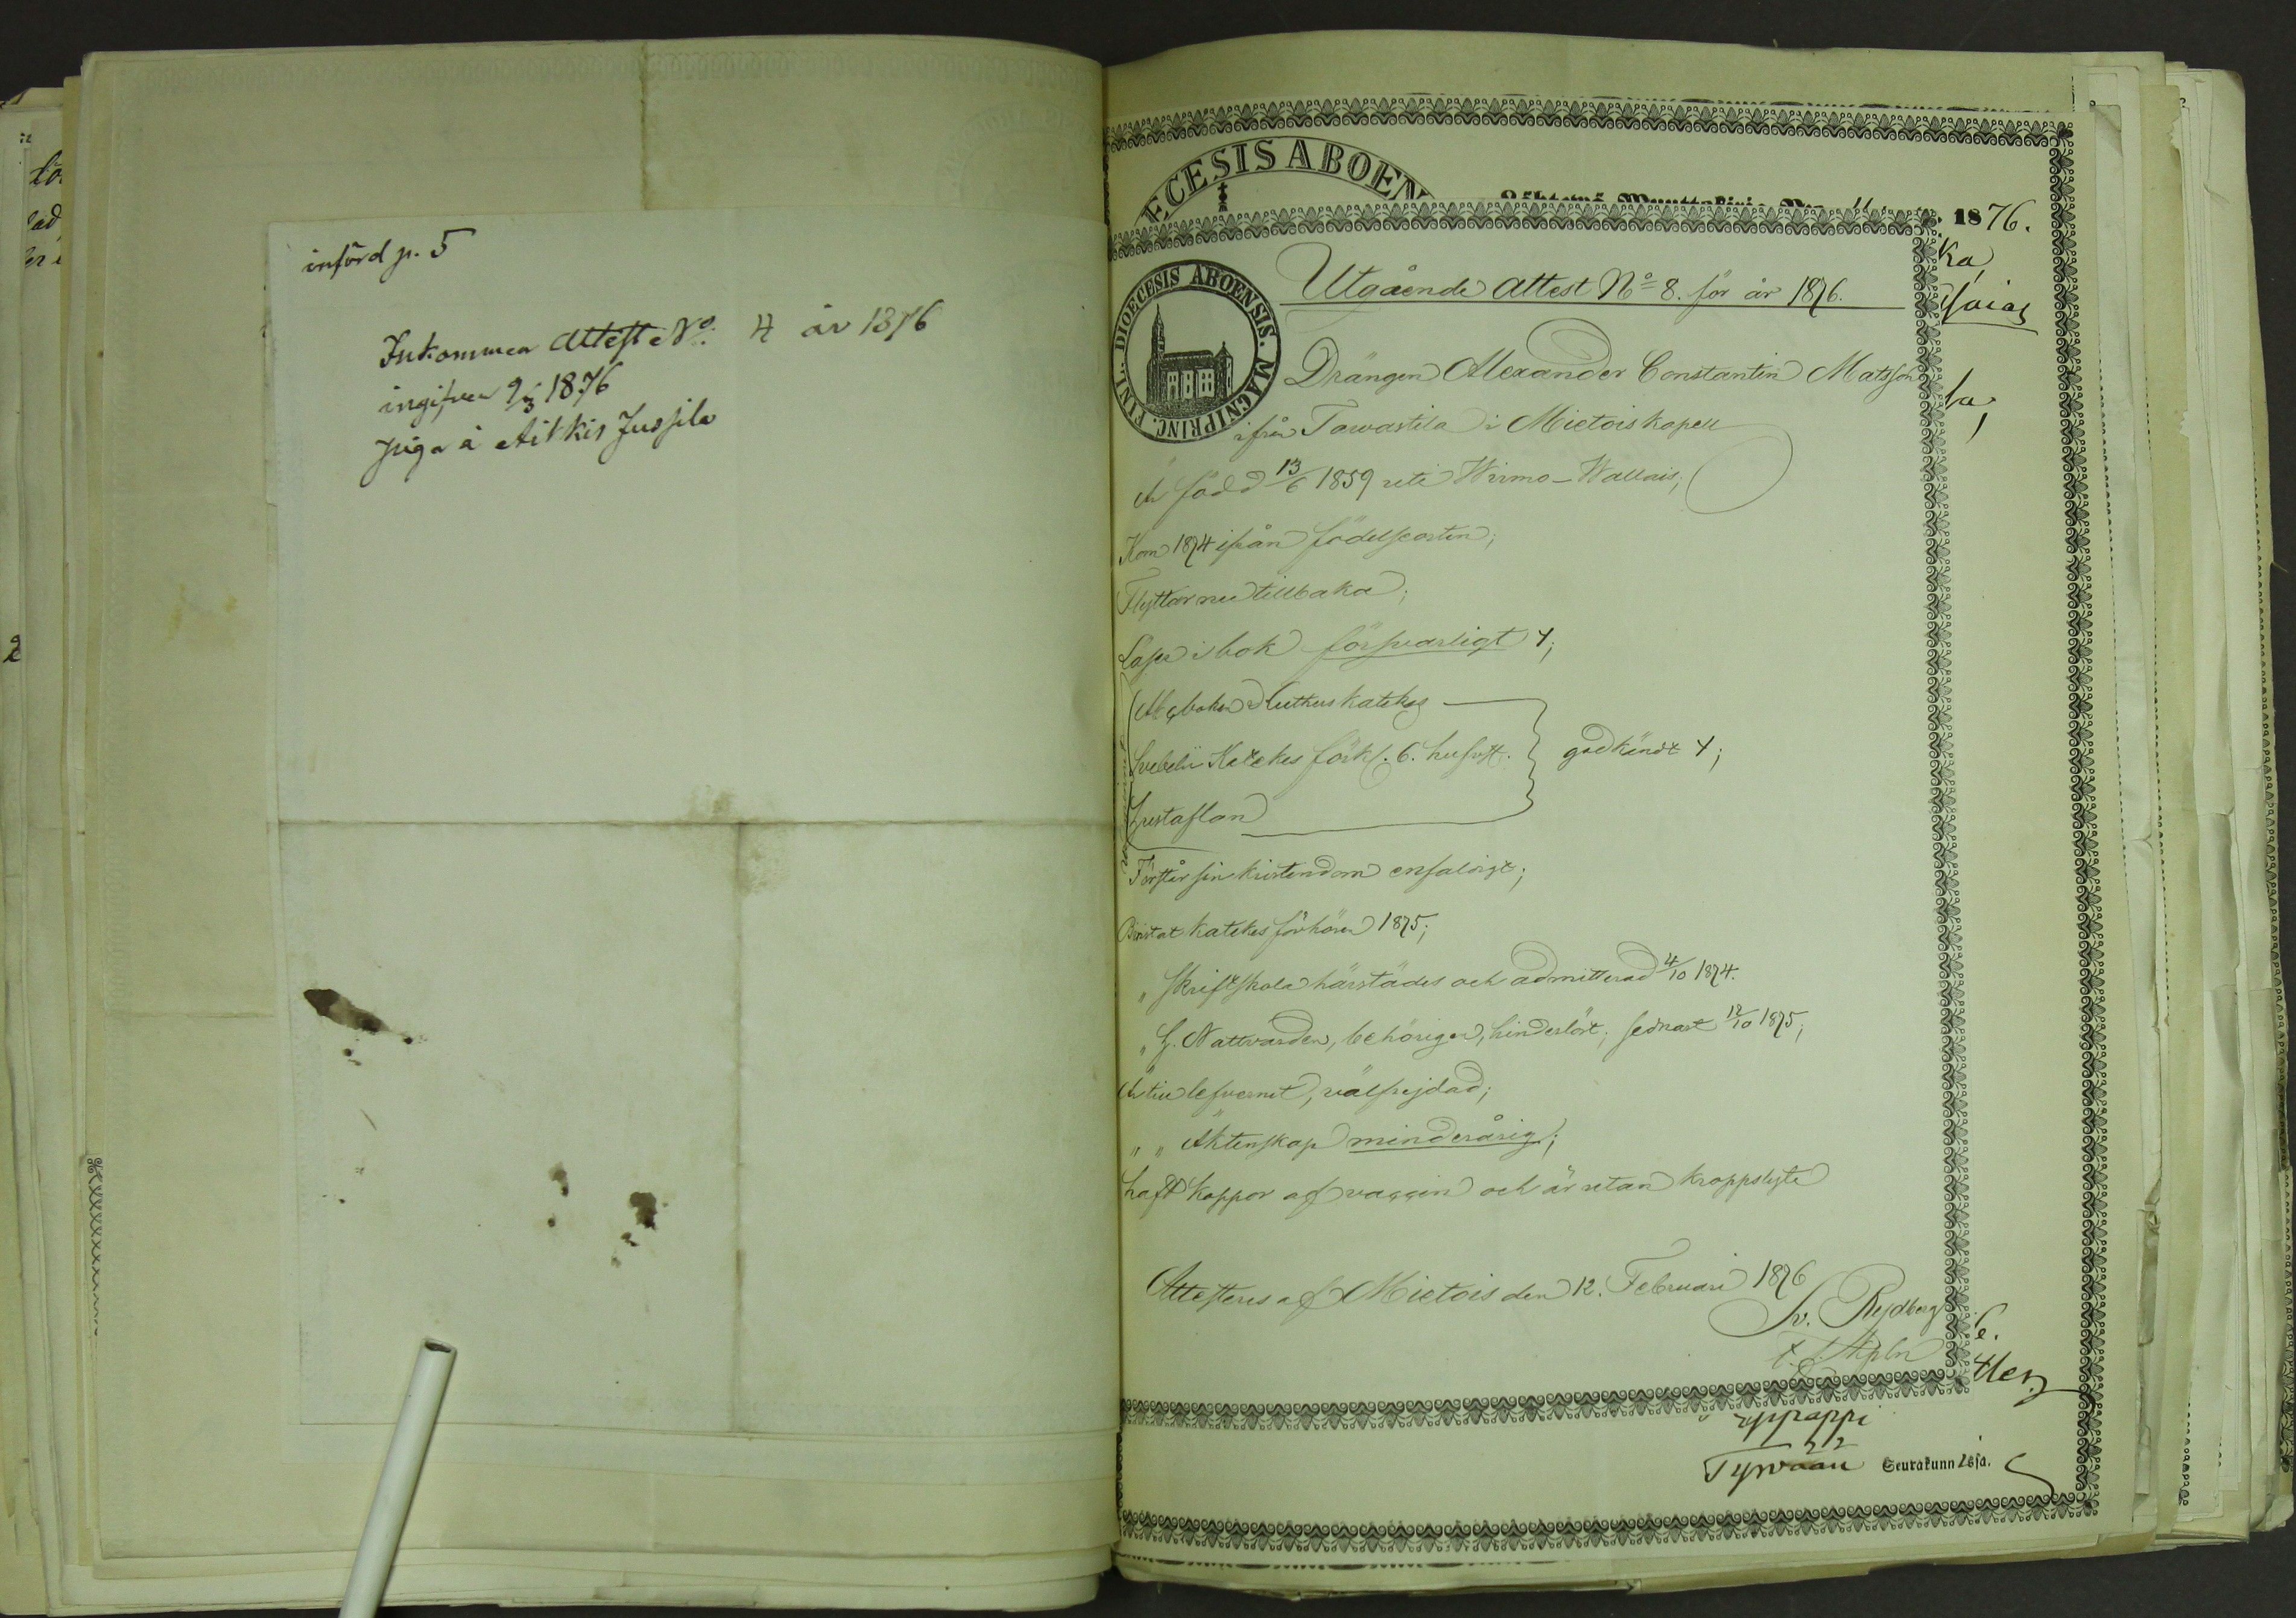 införd p. 5
Inkommen Attest No. 4 år 1876
ingifven 9/3 1876
piga å Aitkis Jussila
ECESIS ABOEN
1876.
DIOECESIS ABOENSIS. MAGNI PRINC. FINL.
Utgående Attest No 8. för år 1876.
Drängen Alexander Constantin Matsson
ifrån Tawastila i Mietois kapell
Är född 13/6 1859 uti Wirmo-Wallais;
Kom 1874 ifrån födelseorten;
Flyttar nu tillbaka;
Läser i bok försvarligt +;
Abcboken Lutheri katekes
Svebelii Katekes förkl. 6. hufvst.
godkändt +;
Hustaflan
Förstår sin kristendom enfaldigt;
Bivistat katekesförhören 1875;
„ Skriftskola härstädes och admitterad 4/10 1874.
„ H. Nattvarden, behörigen, hinderlöst; sednast 12/10 1875;
Är till lefvernet, välfrejdad;
„ „ Äktenskap minderårig;
haft koppor af vaccin och är utan kroppslyte
Attesteras af Mietois den 12. Februari 1876
Rydberg
Tyrvään Seurakunnassa.